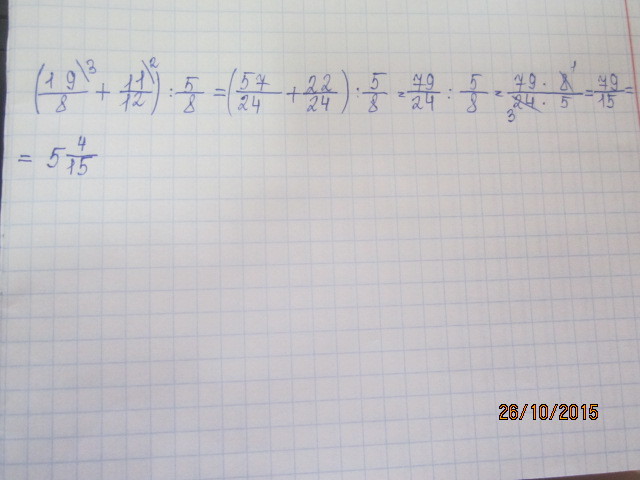 (19\3/8 + 11\2/12) : 5/8 = (57/24 + 22/24) : 5/8 = 79/24 : 5/8 = 79 · 8 1/3 24 · 5 = 79/15 =
= 5 4/15
26/10/2015